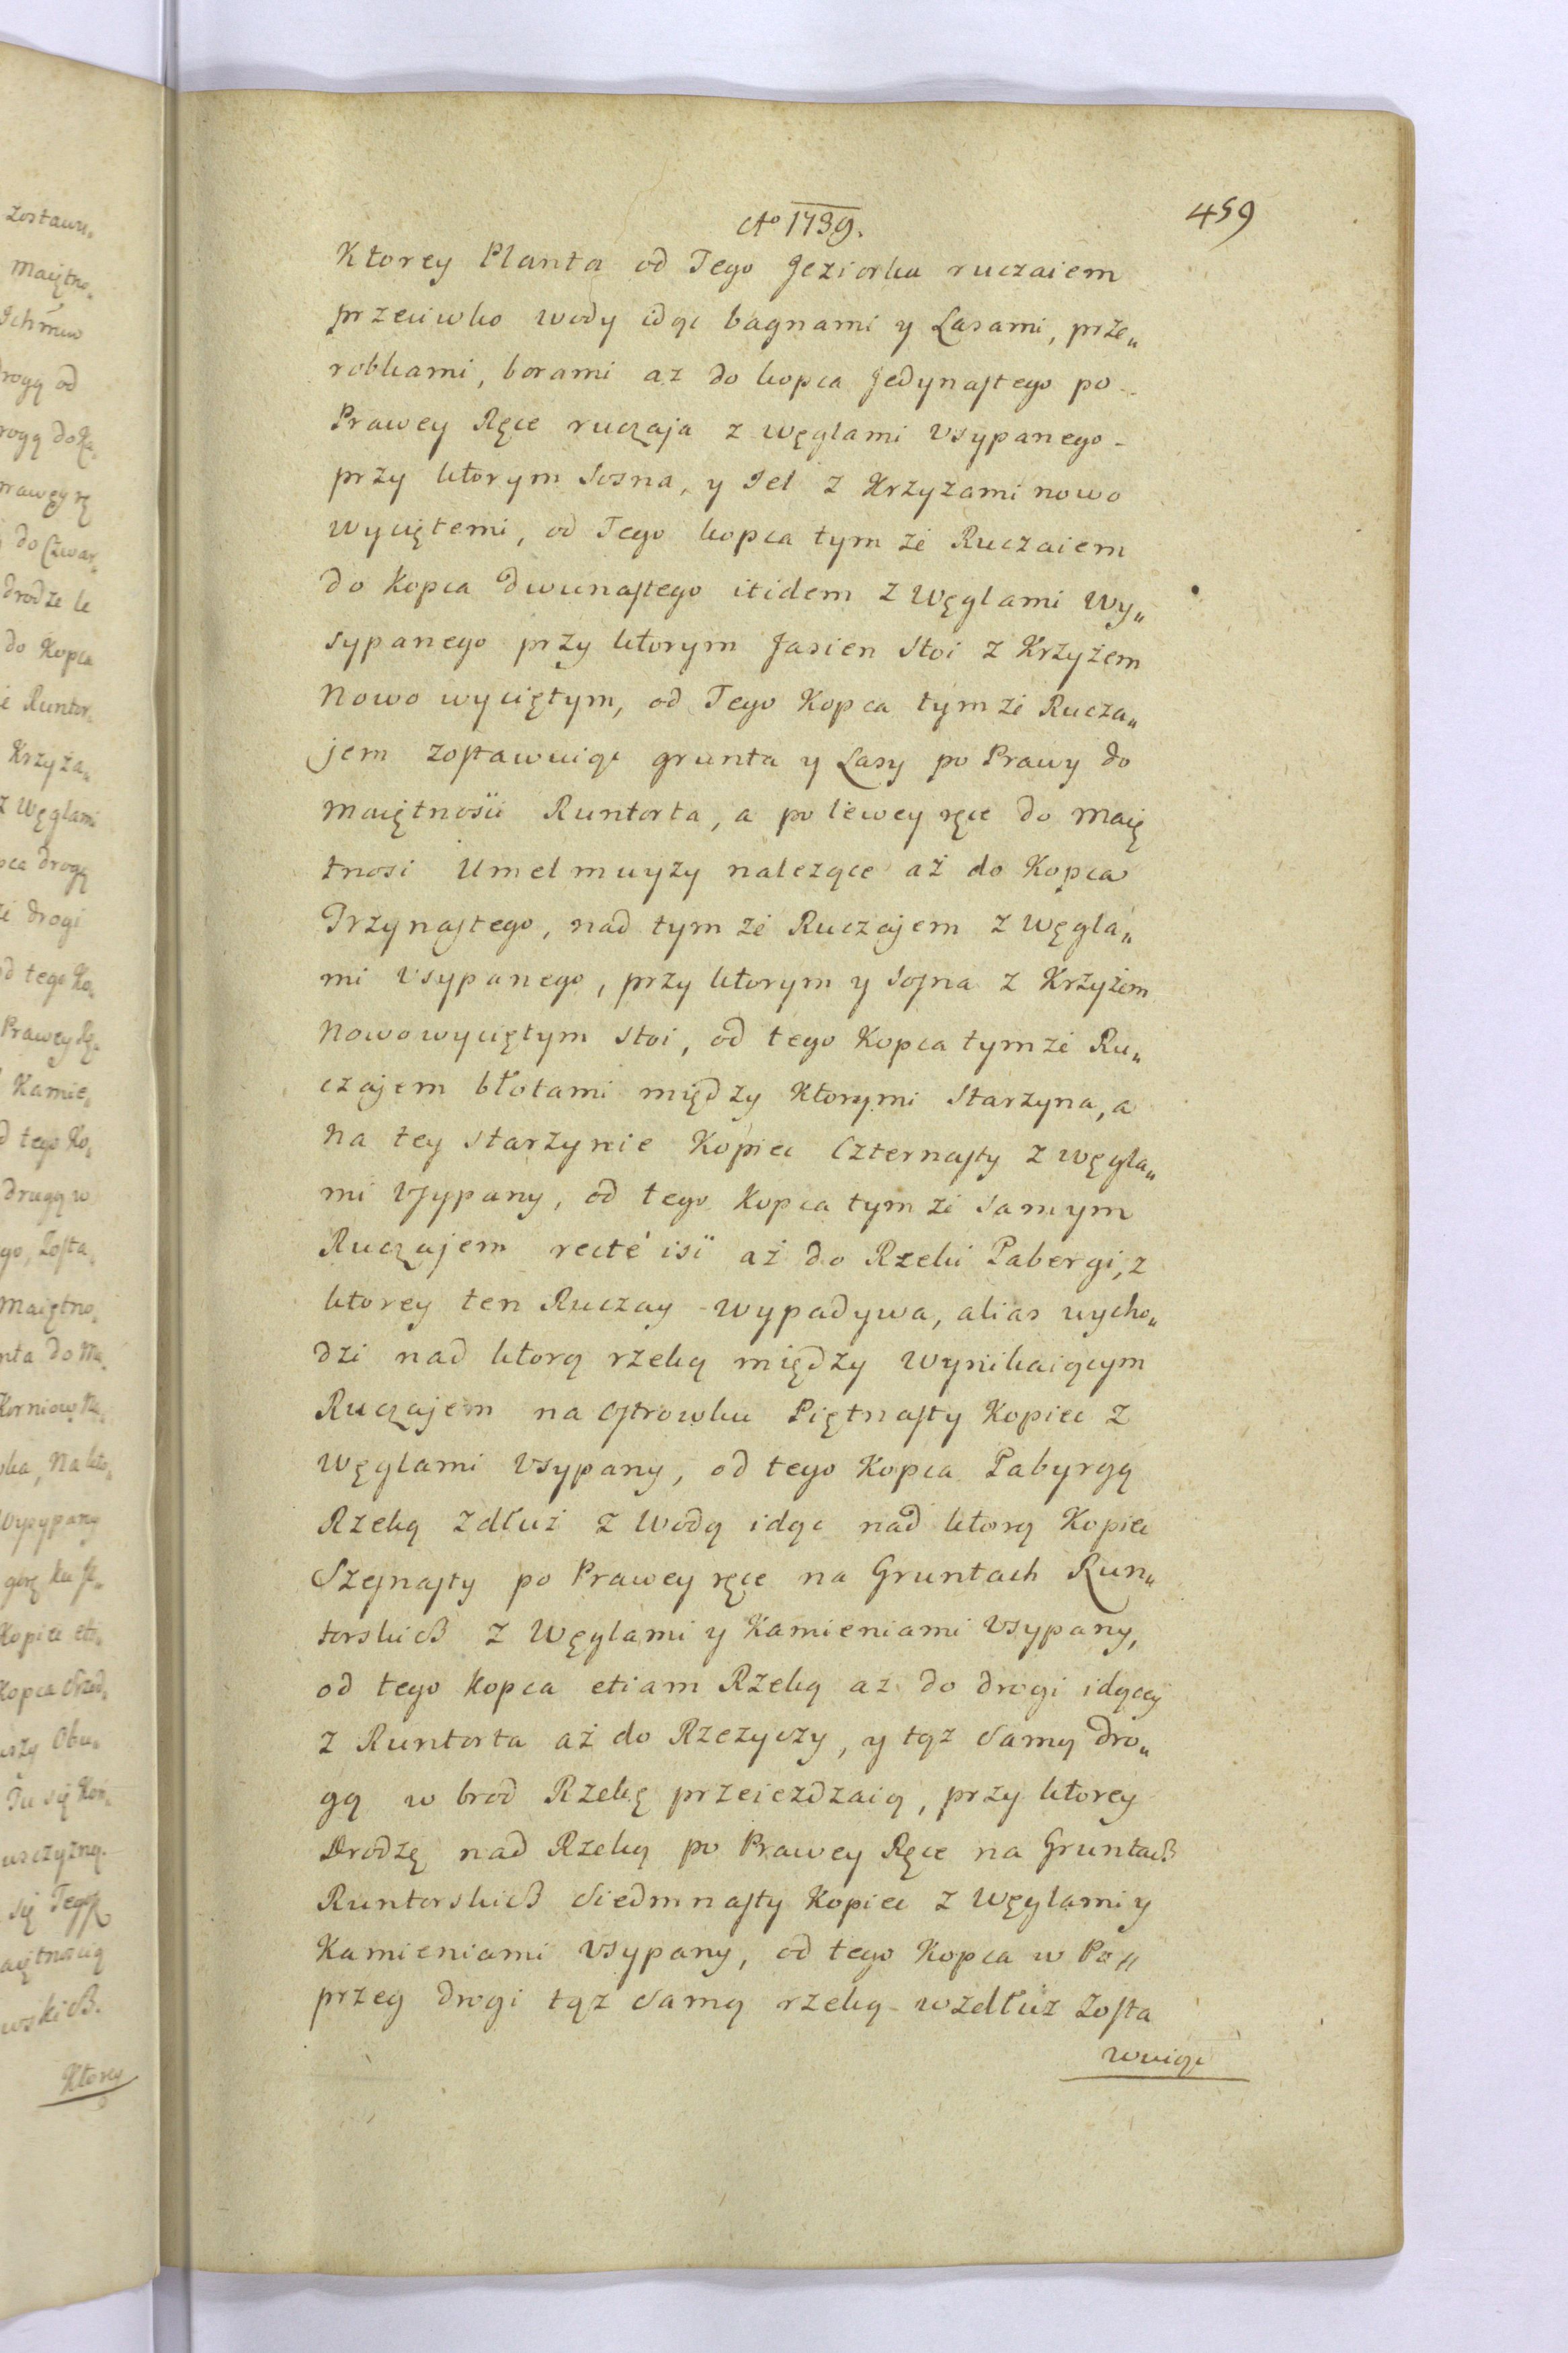 zostawu„
Maiętno„
Ichmcw
drogą od
rogą do Ka„
Prawey rę
do Czwar„
drodze le
do Kopca
ie Runtor„
Krzyża„
z Węglami
pca drogą
że drogi
od tego Ko„
Prawey Rę„
Kamie„
d tego Ko„
drugą w
go, Zosta„
Maiętno„
nta do Ma„
ka, Na kto„
Wysypany
górę ku Je„
Kopiec eti„
Kopca Szed„
uszy Obu„
Tu się Kon„
usczyzną.
się Tegoż
aiętnoscią
wskich.
Ktorey
459
Ao 1739.
Ktorey Planta od Tego Jeziorka ruczaiem
przeciwko wody idąc bagnami y Lasami, prze„
robkami, borami az do kopca Jedynastego po-
Prawey Ręce ruczaja z węglami Vsypanego-
przy ktorym Sosna, y Jel z Krzyzami nowo
wyciętemi, od Tego kopca tym że Ruczaiem
do Kopca dwunastego itidem z Węglami Wy„
sypanego przy ktorym Jasien Stoi z Krzyżem
Nowo wyciętym, od Tego Kopca tym że Rucza„
jem zostawuiąc grunta y Lasy po Prawy do
Maiętnosci Runtorta, a po lewey ręce do Maię
tnosi Umelmuyzy nalezące aż do Kopca
Trzynastego, nad tym że Ruczajem z Węgla„
mi Vsypanego, przy ktorym y Sosna z Krzyżem
Nowowyciętym Stoi, od tego Kopca tymże Ru„
czajem błotami między Ktorymi Starzyna, a
na tey Starzynie Kopiec Czternasty z Węgla„
mi Vsypany, od tego Kopca tym że Samym
Ruczajem recté iść aż do Rzeki Pabergi, z
ktorey ten Ruczay wypadywa, alias wycho„
dzi nad ktorą rzeką między wynikaiącym
Ruczajem na Ostrowku Piętnasty Kopiec z
Węglami Vsypany, od tego Kopca Pabyrgą
Rzeką zdłuż z Wodą idąc nad ktorą Kopiec
Szesnasty po Prawey ręce na Gruntach Run„
torskich z Węglami y Kamieniami Vsypany,
od tego Kopca etiam Rzeką az do drogi idącey
z Runtorta aż do Rzezyczy, y tąz Samą dro„
gą w brod Rzekę przeiezdzaią, przy ktorey
Drodzę nad Rzeką po Prawey Ręce na Gruntach
Runtorskich Siedmnasty Kopiec z Węglami y
Kamieniami Vsypany, od tego Kopca w Po„
przeg drogi tąz Samą rzeką wzdłuż Zosta
wuiąc